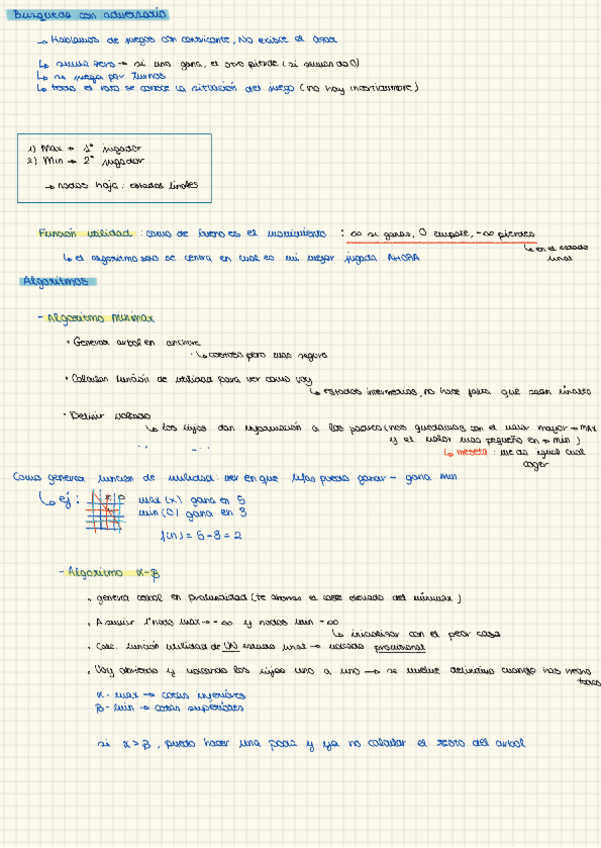 Busqueda con adversario
→ Hablamos de juegos con contrincante, No existe el azar
↳ suma zero → si uno gana, el otro pierde (si suman da 0)
↳ se juega por turnos
↳ todo el rato se conoce la situación del juego (no hay incertidumbre)
1) Max → 1º jugador
2) Min → 2º jugador
→ nodos hoja: estados finales
Función utilidad: como de bueno es el movimiento : ∞ si ganas, 0 empate, -∞ pierdes
↳ en el estado
final
↳ el algoritmo solo se centra en cual es mi mejor jugada AHORA
Algoritmos
- Algoritmo minimax
• Generar arbol en anchura
↳ costoso pero mas seguro
• Calcular función de utilidad para ver como voy
↳ estados intermedios, no hace falta que sean finales
• Definir valores
↳ los hijos dan información a los padres (nos quedamos con el valor mayor → MAX
y el valor mas pequeño en → min)
↳ meseta: me da igual cual
coger
Como generar funcion de utilidad: ver en que filas puedo ganar - gana min
↳ ej:
max (x) gana en 5
min (0) gana en 3
f(n) = 5 - 3 = 2
- Algoritmo α-β
• generar arbol en profundidad (te ahorras el coste elevado del minimax)
• Asumir 1º nodo max → -∞ y nodos min -∞
↳ inicializar con el peor caso
• Calc. función utilidad de UN estado final → provisional
• Voy abriendo y los hijos uno a uno → se vuelve definitivo cuando has hecho
todos
α - max → cotas inferiores
β - min → cotas superiores
si α > β, puedo hacer una poda y ya no calcular el resto del arbol